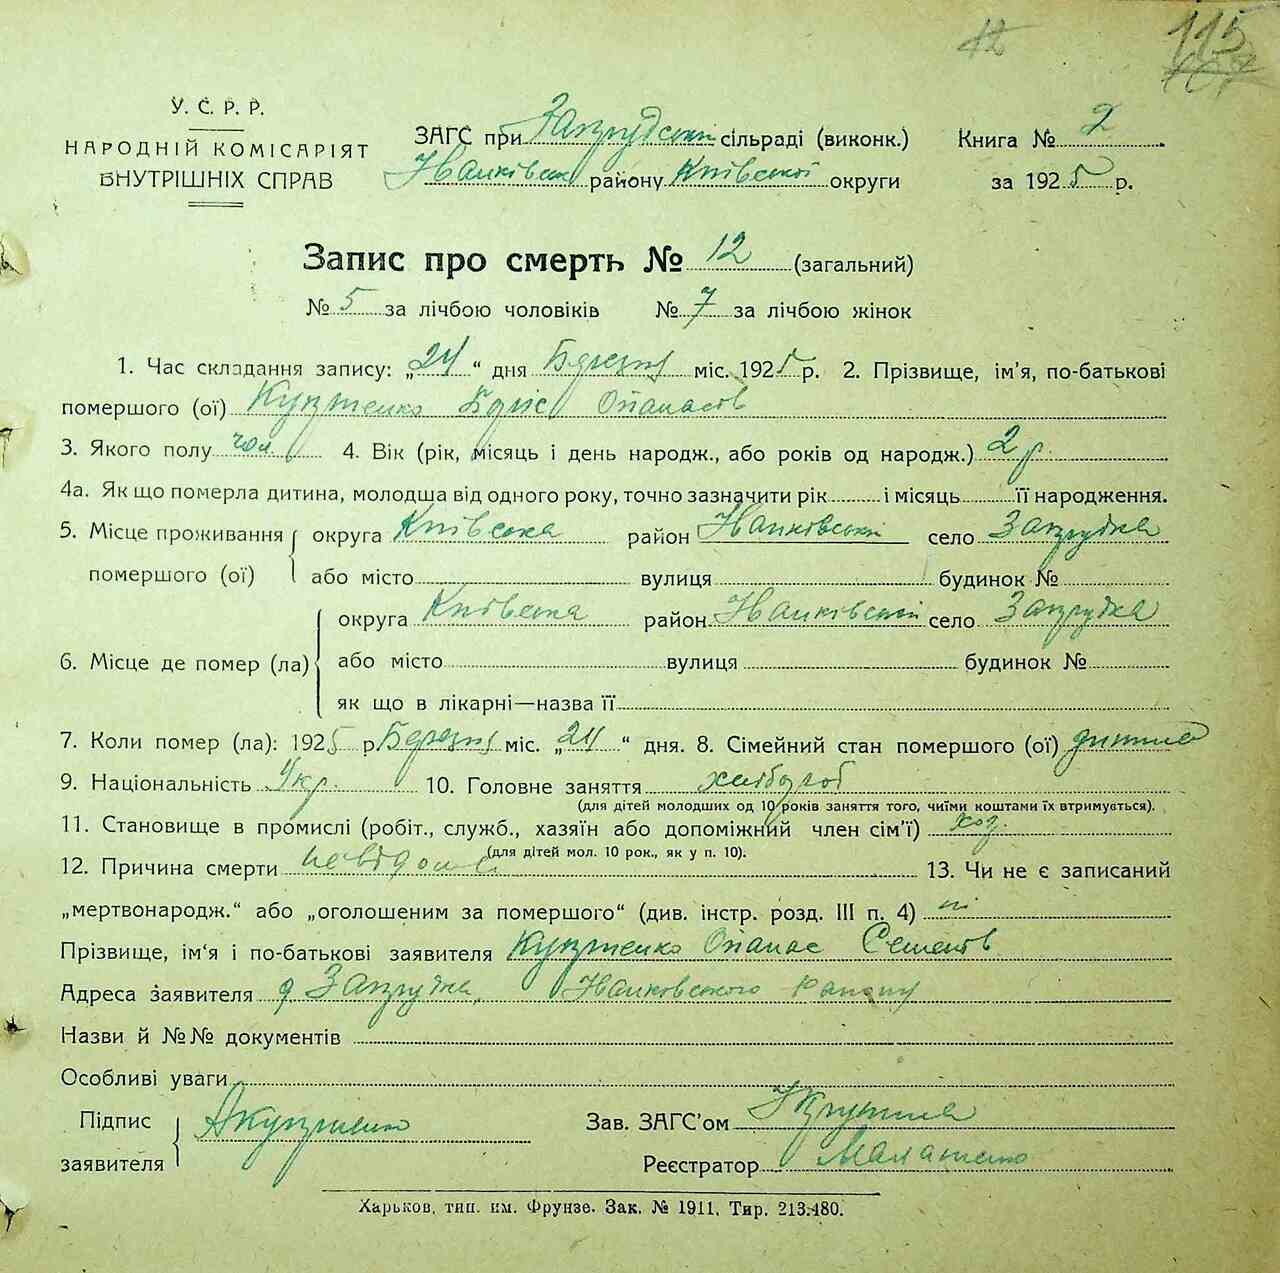 12 115
У. С. Р. Р.
НАРОДНІЙ КОМІСАРІЯТ
ВНУТРІШНІХ СПРАВ
ЗАГС при Захрудській сільраді (виконк.)
Іванківськ району Київської округи
Книга № 2
за 1925 р.
Запис про смерть № 12 (загальний)
№ 5 за лічбою чоловіків № 7 за лічбою жінок
1. Час складання запису: „24“ дня Березня міс. 1925 р. 2. Прізвище, ім'я, по-батькові
помершого (ої) Борис Опанасов
3. Якого полу чол. 4. Вік (рік, місяць і день народж., або років од народж.) 2 р.
4а. Як що померла дитина, молодша від одного року, точно зазначити рік і місяць її народження.
5. Місце проживання округа Київська район Іванківський село Захрудка
помершого (ої) або місто вулиця будинок №
округа Київська район Іванківський село Захрудка
6. Місце де помер (ла) або місто вулиця будинок №
як що в лікарні—назва її
7. Коли помер (ла): 1925 р Березня міс. „24“ дня. 8. Сімейний стан помершого (ої) дитина
9. Національність Укр. 10. Головне заняття хлібороб
(для дітей молодших од 10 років заняття того, чиїми коштами їх втримується).
11. Становище в промислі (робіт., служб., хазяїн або допоміжний член сім'ї) хоз.
(для дітей мол. 10 рок., як у п. 10).
12. Причина смерти невідома 13. Чи не є записаний
„мертвонародж.“ або „оголошеним за помершого“ (див. інстр. розд. III п. 4) ні
Прізвище, ім'я і по-батькові заявителя Опанас Семенів
Адреса заявителя с Захрудка, Іванковського району
Назви й №№ документів
Особливі уваги
Підпис
заявителя
Зав. ЗАГС'ом
Реєстратор
Харьков, тип. им. Фрунзе. Зак. № 1911. Тир. 213.480.